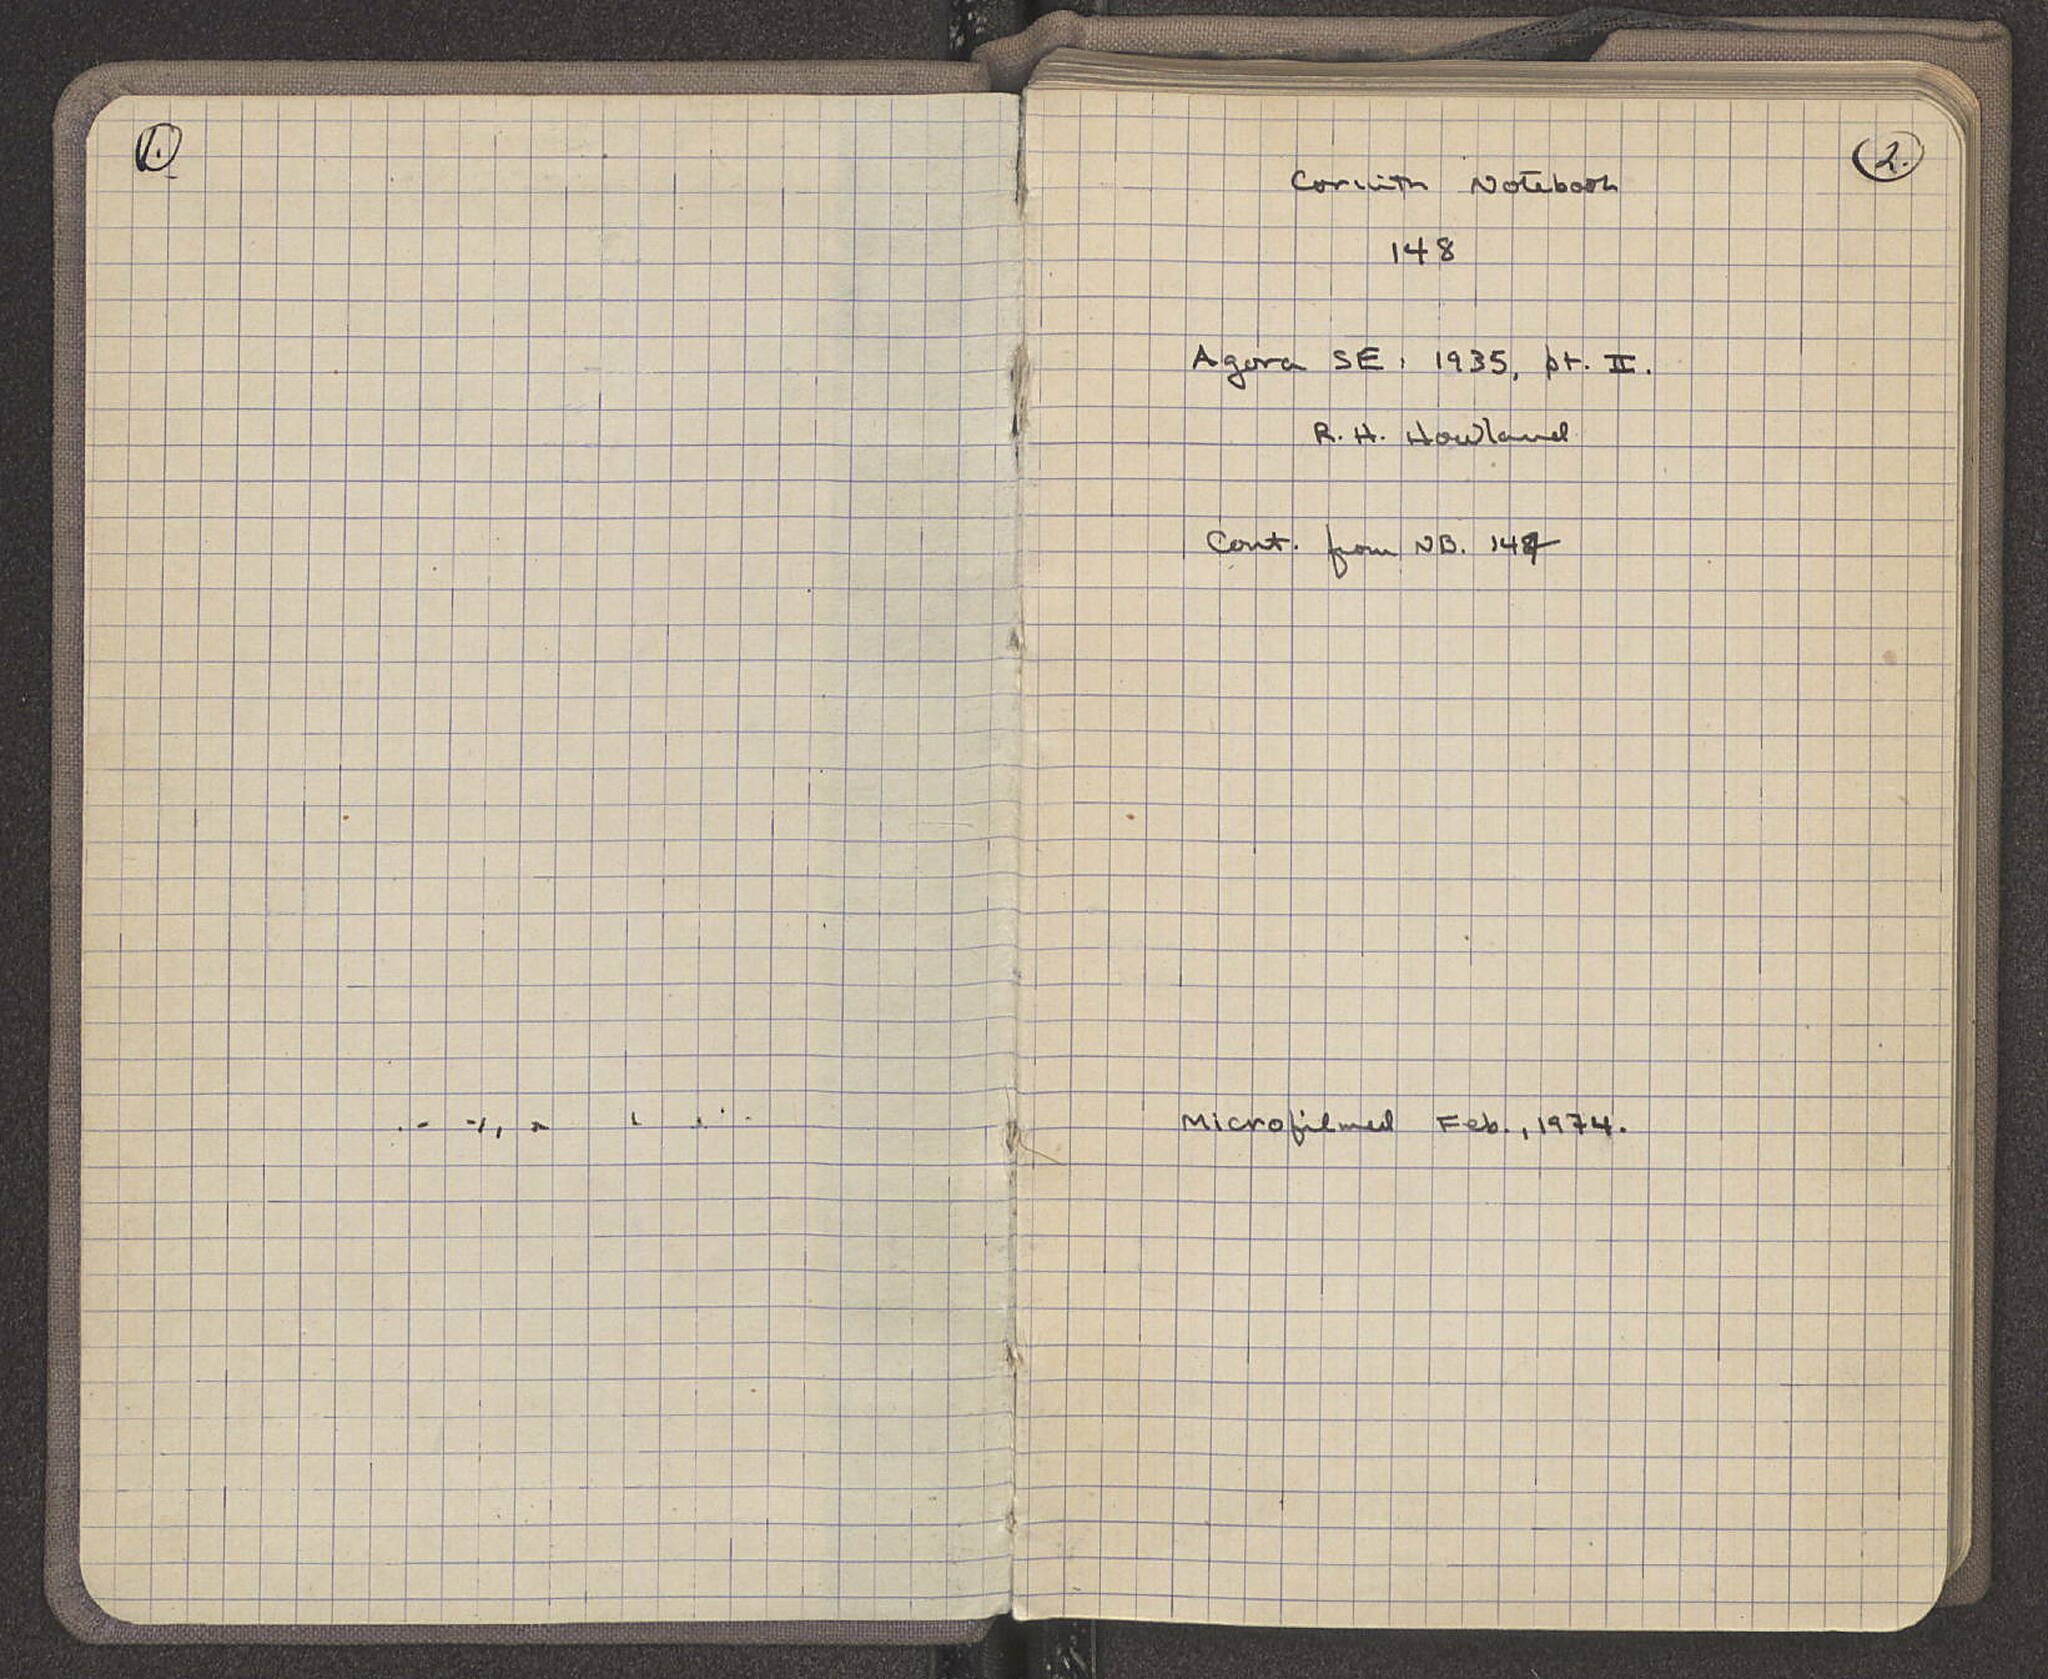 1.
2.
Corinth Notebook
148
Agora SE: 1935, pt. II.
R. H. Howland
Cont. from NB. 147
Microfilmed Feb., 1974.